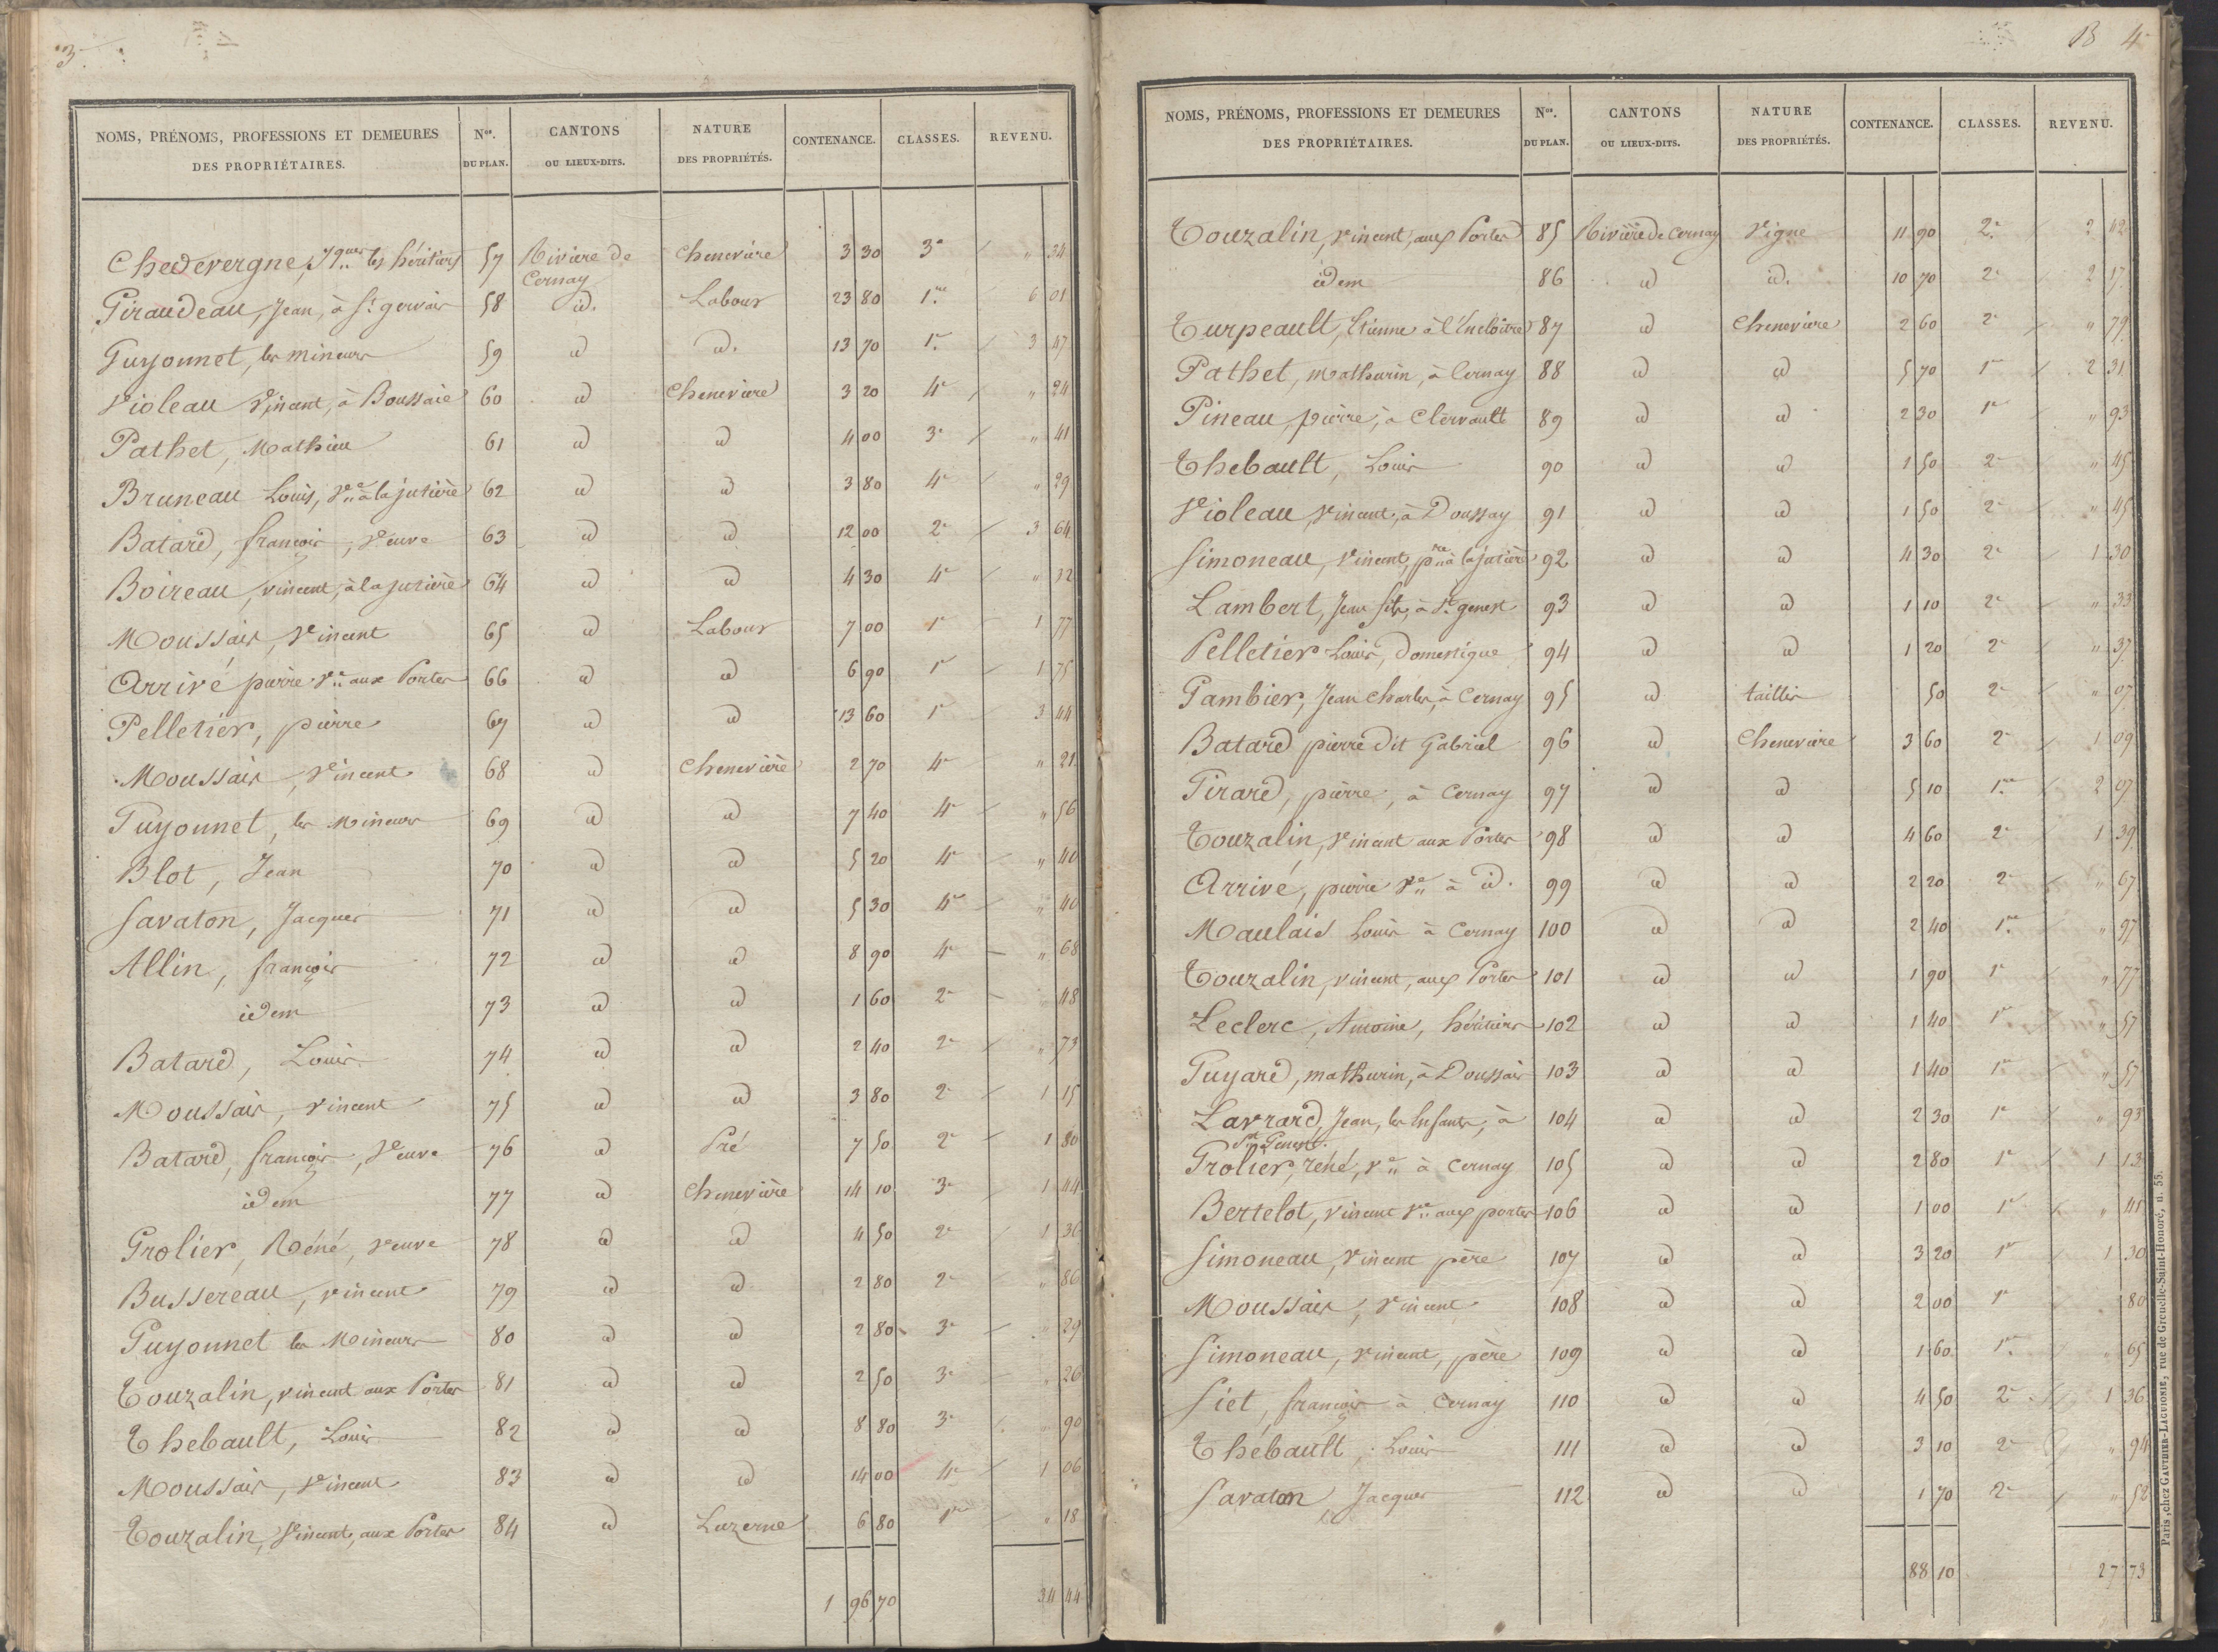 3
NOMS, PRÉNOMS, PROFESSIONS ET DEMEURES DES PROPRIÉTAIRES. Nos. DU PLAN. CANTONS OU LIEUX-DITS. NATURE DES PROPRIÉTÉS. CONTENANCE. CLASSES. REVENU.
Chedevergne, Jques les héritiers 57 Rivière de Cernay Chenevière 3 30 3e " 34
Giraudeau, Jean, à St gervais 58 id. Labour 23 80 1re 6 01
Guyonnet, les mineurs 59 id id. 13 70 1re 3 47
Violeau Vincent, à Boussaie 60 id Chenevière 3 20 4e " 24
Pathet, Mathieu 61 id id 4 00 3e " 41
Bruneau Louis, Ve à la jutière 62 id id 3 80 4e " 29
Batard, françois, Veuve 63 id id 12 00 2e 3 64
Boireau, vincent, à la jutière 64 id id 4 30 4e " 32
Moussais, Vincent 65 id Labour 7 00 1e 1 77
Arrivé pierre Ve aux Portes 66 id id 6 90 1e 1 75
Pelletier, pierre 67 id id 13 60 1e 3 44
Moussais, Vincent 68 id Chenevière 2 70 4e " 21
Guyonnet, les Mineurs 69 id id 7 40 4e " 56
Blot, Jean 70 id id 5 20 4e " 40
Savaton, Jacques 71 id id 5 30 4e " 40
Allin, françois 72 id id 8 90 4e " 68
idem 73 id id 1 60 2e " 48
Batard, Louis 74 id id 2 40 2e " 73
Moussais, vincent 75 id id 3 80 2e 1 15
Batard, françois, Veuve 76 id Pré 7 50 2e 1 80
idem 77 id Chenevière 14 10 3e 1 44
Grolier, Réné, veuve 78 id id 4 50 2e 1 36
Bussereau, vincent 79 id id 2 80 2e " 86
Guyonnet les Mineurs 80 id id 2 80 3e " 29
Touzalin, vincent aux Portes 81 id id 2 50 3e " 26
Thebault, Louis 82 id id 8 80 3e " 90
Moussais, Vincent 83 id id 14 00 4e 1 06
Touzalin, Vincent, aux Portes 84 id Luzerne 6 80 1re " 18
1 96 70 34 44
B 4
NOMS, PRÉNOMS, PROFESSIONS ET DEMEURES DES PROPRIÉTAIRES. Nos. DU PLAN. CANTONS OU LIEUX-DITS. NATURE DES PROPRIÉTÉS. CONTENANCE. CLASSES. REVENU.
Touzalin, vincent, aux Portes 85 Rivière de Cernay Vigne 11 90 2e 2 42
idem 86 id id. 10 70 2e 2 17
Turpeault, Etienne à l'Encloitre 87 id Chenevière 2 60 2e " 79
Pathet, mathurin, à Cernay 88 id id 5 70 1re 2 31
Pineau, pierre, à Clervault 89 id id 2 30 1e " 93
Thebault, Louis 90 id id 1 50 2e " 45
Violeau, vincent, à Doussay 91 id id 1 50 2e " 45
Simoneau, vincent, pre à la jutière 92 id id 4 30 2e 1 30
Lambert, Jean fils, à St genest 93 id id 1 10 2e " 33
Pelletier Louis, Domestique 94 id id 1 20 2e " 37
Gambier, Jean Charles, à Cernay 95 id taillis 50 2e " 07
Batard pierre dit Gabriel 96 id Chenevière 3 60 2e 1 09
Girard, pierre, à Cernay 97 id id 5 10 1re 2 07
Touzalin, Vincent aux Portes 98 id id 4 60 2e 1 39
Arrivé, pierre Ve à id. 99 id id 2 20 2e " 67
Maulais Louis à Cernay 100 id id 2 40 1re " 97
Touzalin, vincent, aux Portes 101 id id 1 90 1e " 77
Leclerc, Antoine, héritiers 102 id id 1 40 1re " 57
Guyard, mathurin, à Doussais 103 id id 1 40 1re " 57
Lavrard, Jean, les Enfants, à St Genest. 104 id id 2 30 1e " 93
Grolier, réné, Ve à Cernay 105 id id 2 80 1e 1 13
Bertelot, vincent Ve aux portes 106 id id 1 00 1e " 41
Simoneau, Vincent père 107 id id 3 20 1re 1 30
Moussais, Vincent 108 id id 2 00 1e 80
Simoneau, vincent, père 109 id id 1 60 1re " 65
Siet, françois à Cernay 110 id id 4 50 2e 1 36
Thébault, Louis 111 id id 3 10 2e " 94
Savaton, Jacques 112 id id 1 70 2e " 52
88 10 27 73
Paris, chez GAUTHIER-LAGUIONIE, rue de Grenelle-Saint-Honoré, n. 55.